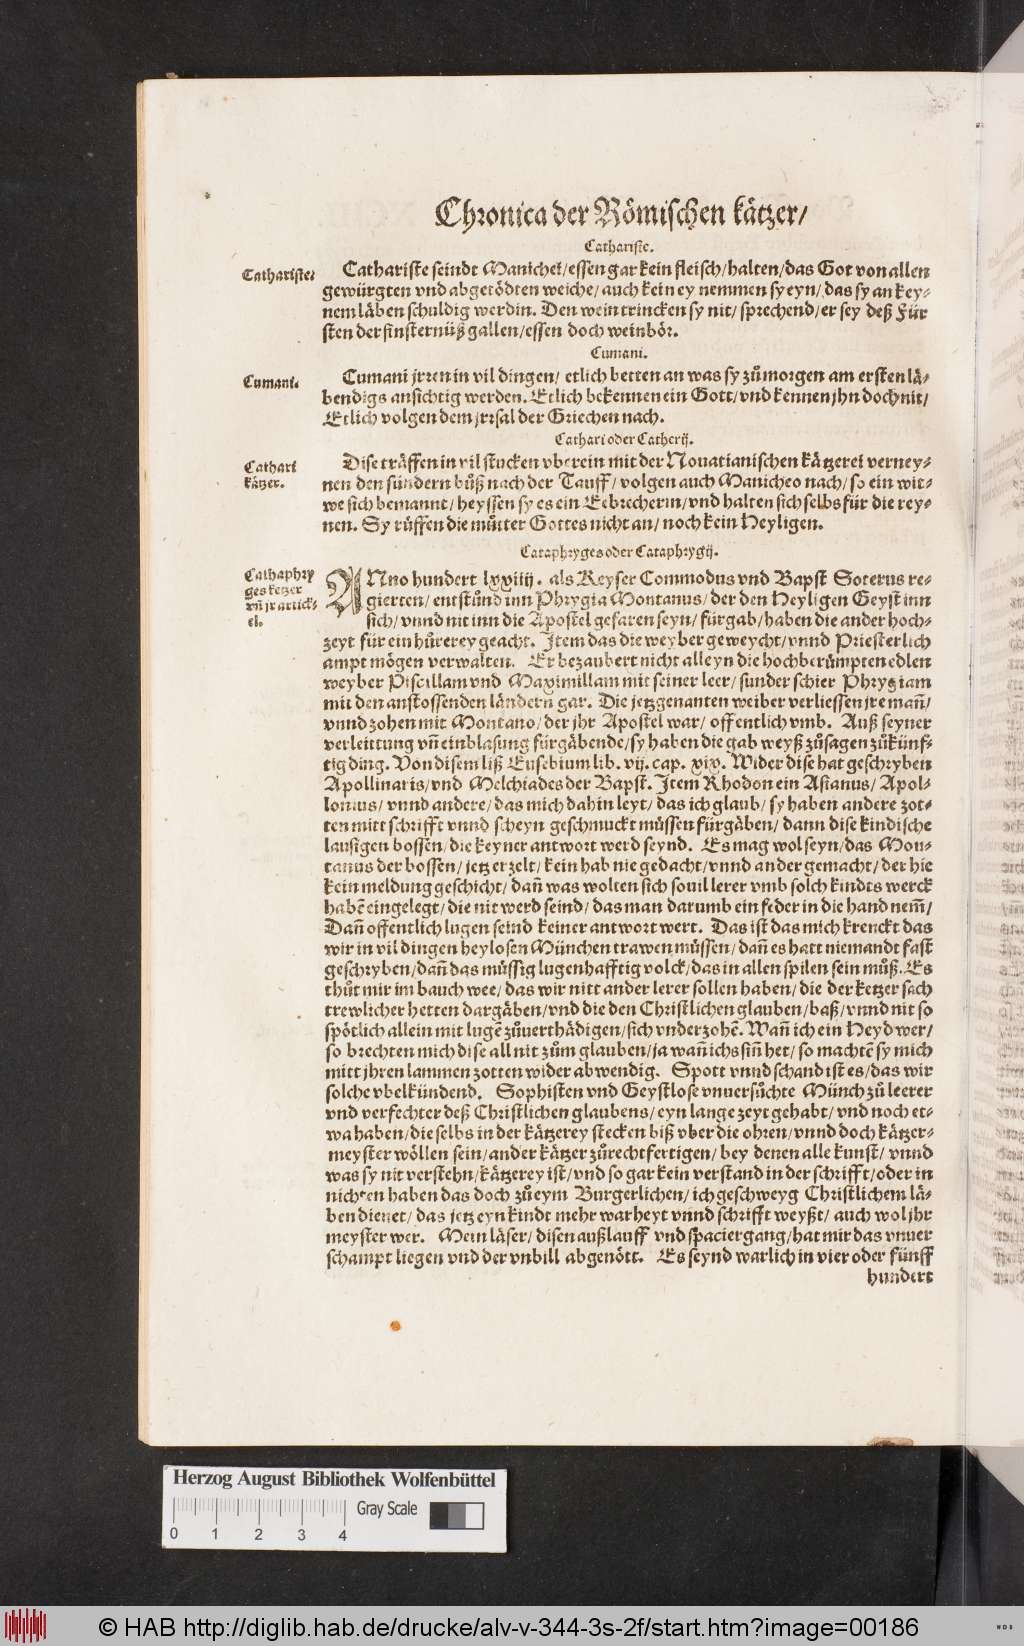 Chronica der Römischen kätzer/
Cathariste.
Cathariste.
Cathariste seindt Manichei/essen gar kein fleisch/halten/das Got von allen
gewürgten vnd abgetödten weiche/auch kein ey nemmen sy eyn/das sy an key-
nem läben schuldig werdin. Den wein trincken sy nit/sprechend/er sey deß Für
sten der finsternüß gallen/essen doch weinbör.
Cumani.
Cumani.
Cumani jrren in vil dingen/ etlich betten an was sy zů morgen am ersten lä-
bendigs ansichtig werden. Etlich bekennen ein Gott/vnd kennen jhn doch nit/
Etlich volgen dem jrrsal der Griechen nach.
Cathari oder Catherij.
Cathari
kätzer.
Dise träffen in vil stucken vberein mit der Nouatianischen kätzerei verney-
nen den sündern bůß nach der Tauff/volgen auch Manicheo nach/so ein wit-
we sich bemannt/heyssen sy es ein Eebrecherin/vnd halten sich selbs für die rey-
nen. Sy růffen die můtter Gottes nicht an/noch kein Heyligen.
Cataphryges oder Cataphrygij.
Cathaphry
ges ketzer
vñ jr artick-
el.
ANno hundert lxxiiij. als Keyser Commodus vnd Bapst Soterus re-
gierten/entstůnd inn Phrygia Montanus/der den Heyligen Geyst inn
sich/vnnd nit inn die Apostel gefaren seyn/fürgab/haben die ander hoch-
zeyt für ein hůrerey geacht. Item das die weyber geweycht/vnnd Priesterlich
ampt mögen verwalten. Er bezaubert nicht alleyn die hochberümpten edlen
weyber Piscillam vnd Maximillam mit seiner leer/sunder schier Phrygiam
mit den anstossenden ländern gar. Die jetzgenanten weiber verliessen jre mañ/
vnnd zohen mit Montano/der jhr Apostel war/offentlich vmb. Auß seyner
verleittung vñ einblasung fürgäbende/sy haben die gab weyß zůsagen zůkünf-
tig ding. Von disem liß Eusebium lib. vij. cap. xix. Wider dise hat geschryben
Apollinaris/vnd Melchiades der Bapst. Item Rhodon ein Asianus/Apol-
lonius/vnnd andere/das mich dahin leyt/das ich glaub/sy haben andere zot-
ten mitt schrifft vnnd scheyn geschmuckt müssen fürgäben/dann dise kindische
lausigen bossen/die keyner antwort werd seynd. Es mag wol seyn/das Mon-
tanus der bossen/jetz erzelt/kein hab nie gedacht/vnnd ander gemacht/der hie
kein meldung geschicht/dañ was wolten sich souil lerer vmb solch kindts werck
habẽ eingelegt/die nit werd seind/das man darumb ein feder in die hand nem̃/
Dañ offentlich lugen seind keiner antwort wert. Das ist das mich krenckt das
wir in vil dingen heylosen München trawen müssen/dañ es hatt niemandt fast
geschryben/dañ das müssig lugenhafftig volck/das in allen spilen sein můß. Es
thůt mir im bauch wee/das wir nitt ander lerer sollen haben/die der ketzer sach
trewlicher hetten dargäben/vnd die den Christlichen glauben/baß/vnnd nit so
spötlich allein mit lugẽ zůuerthädigen/sich vnderzohẽ. Wañ ich ein Heyd wer/
so brechten mich dise all nit zům glauben/ja wañ ichs siñ het/so machtẽ sy mich
mitt jhren lammen zotten wider abwendig. Spott vnnd schand ist es/das wir
solche vbelkündend. Sophisten vnd Geystlose vnuersůchte Münch zů leerer
vnd verfechter deß Christlichen glaubens/eyn lange zeyt gehabt/vnd noch et-
wa haben/die selbs in der kätzerey stecken biß vber die ohren/vnnd doch kätzer-
meyster wöllen sein/ander kätzer zůrechtfertigen/bey denen alle kunst/vnnd
was sy nit verstehn/kätzerey ist/vnd so gar kein verstand in der schrifft/oder in
nichten haben das doch zů eym Burgerlichen/ich geschweyg Christlichem lä-
ben dienet/das jetz eyn kindt mehr warheyt vnnd schrifft weyßt/auch wol jhr
meyster wer. Mein läser/disen außlauff vnd spaciergang/hat mir das vnuer
schampt liegen vnd der vnbill abgenött. Es seynd warlich in vier oder fünff
hundert
Herzog August Bibliothek Wolfenbüttel
Gray Scale
0 1 2 3 4
© HAB http://diglib.hab.de/drucke/alv-v-344-3s-2f/start.htm?image=00186